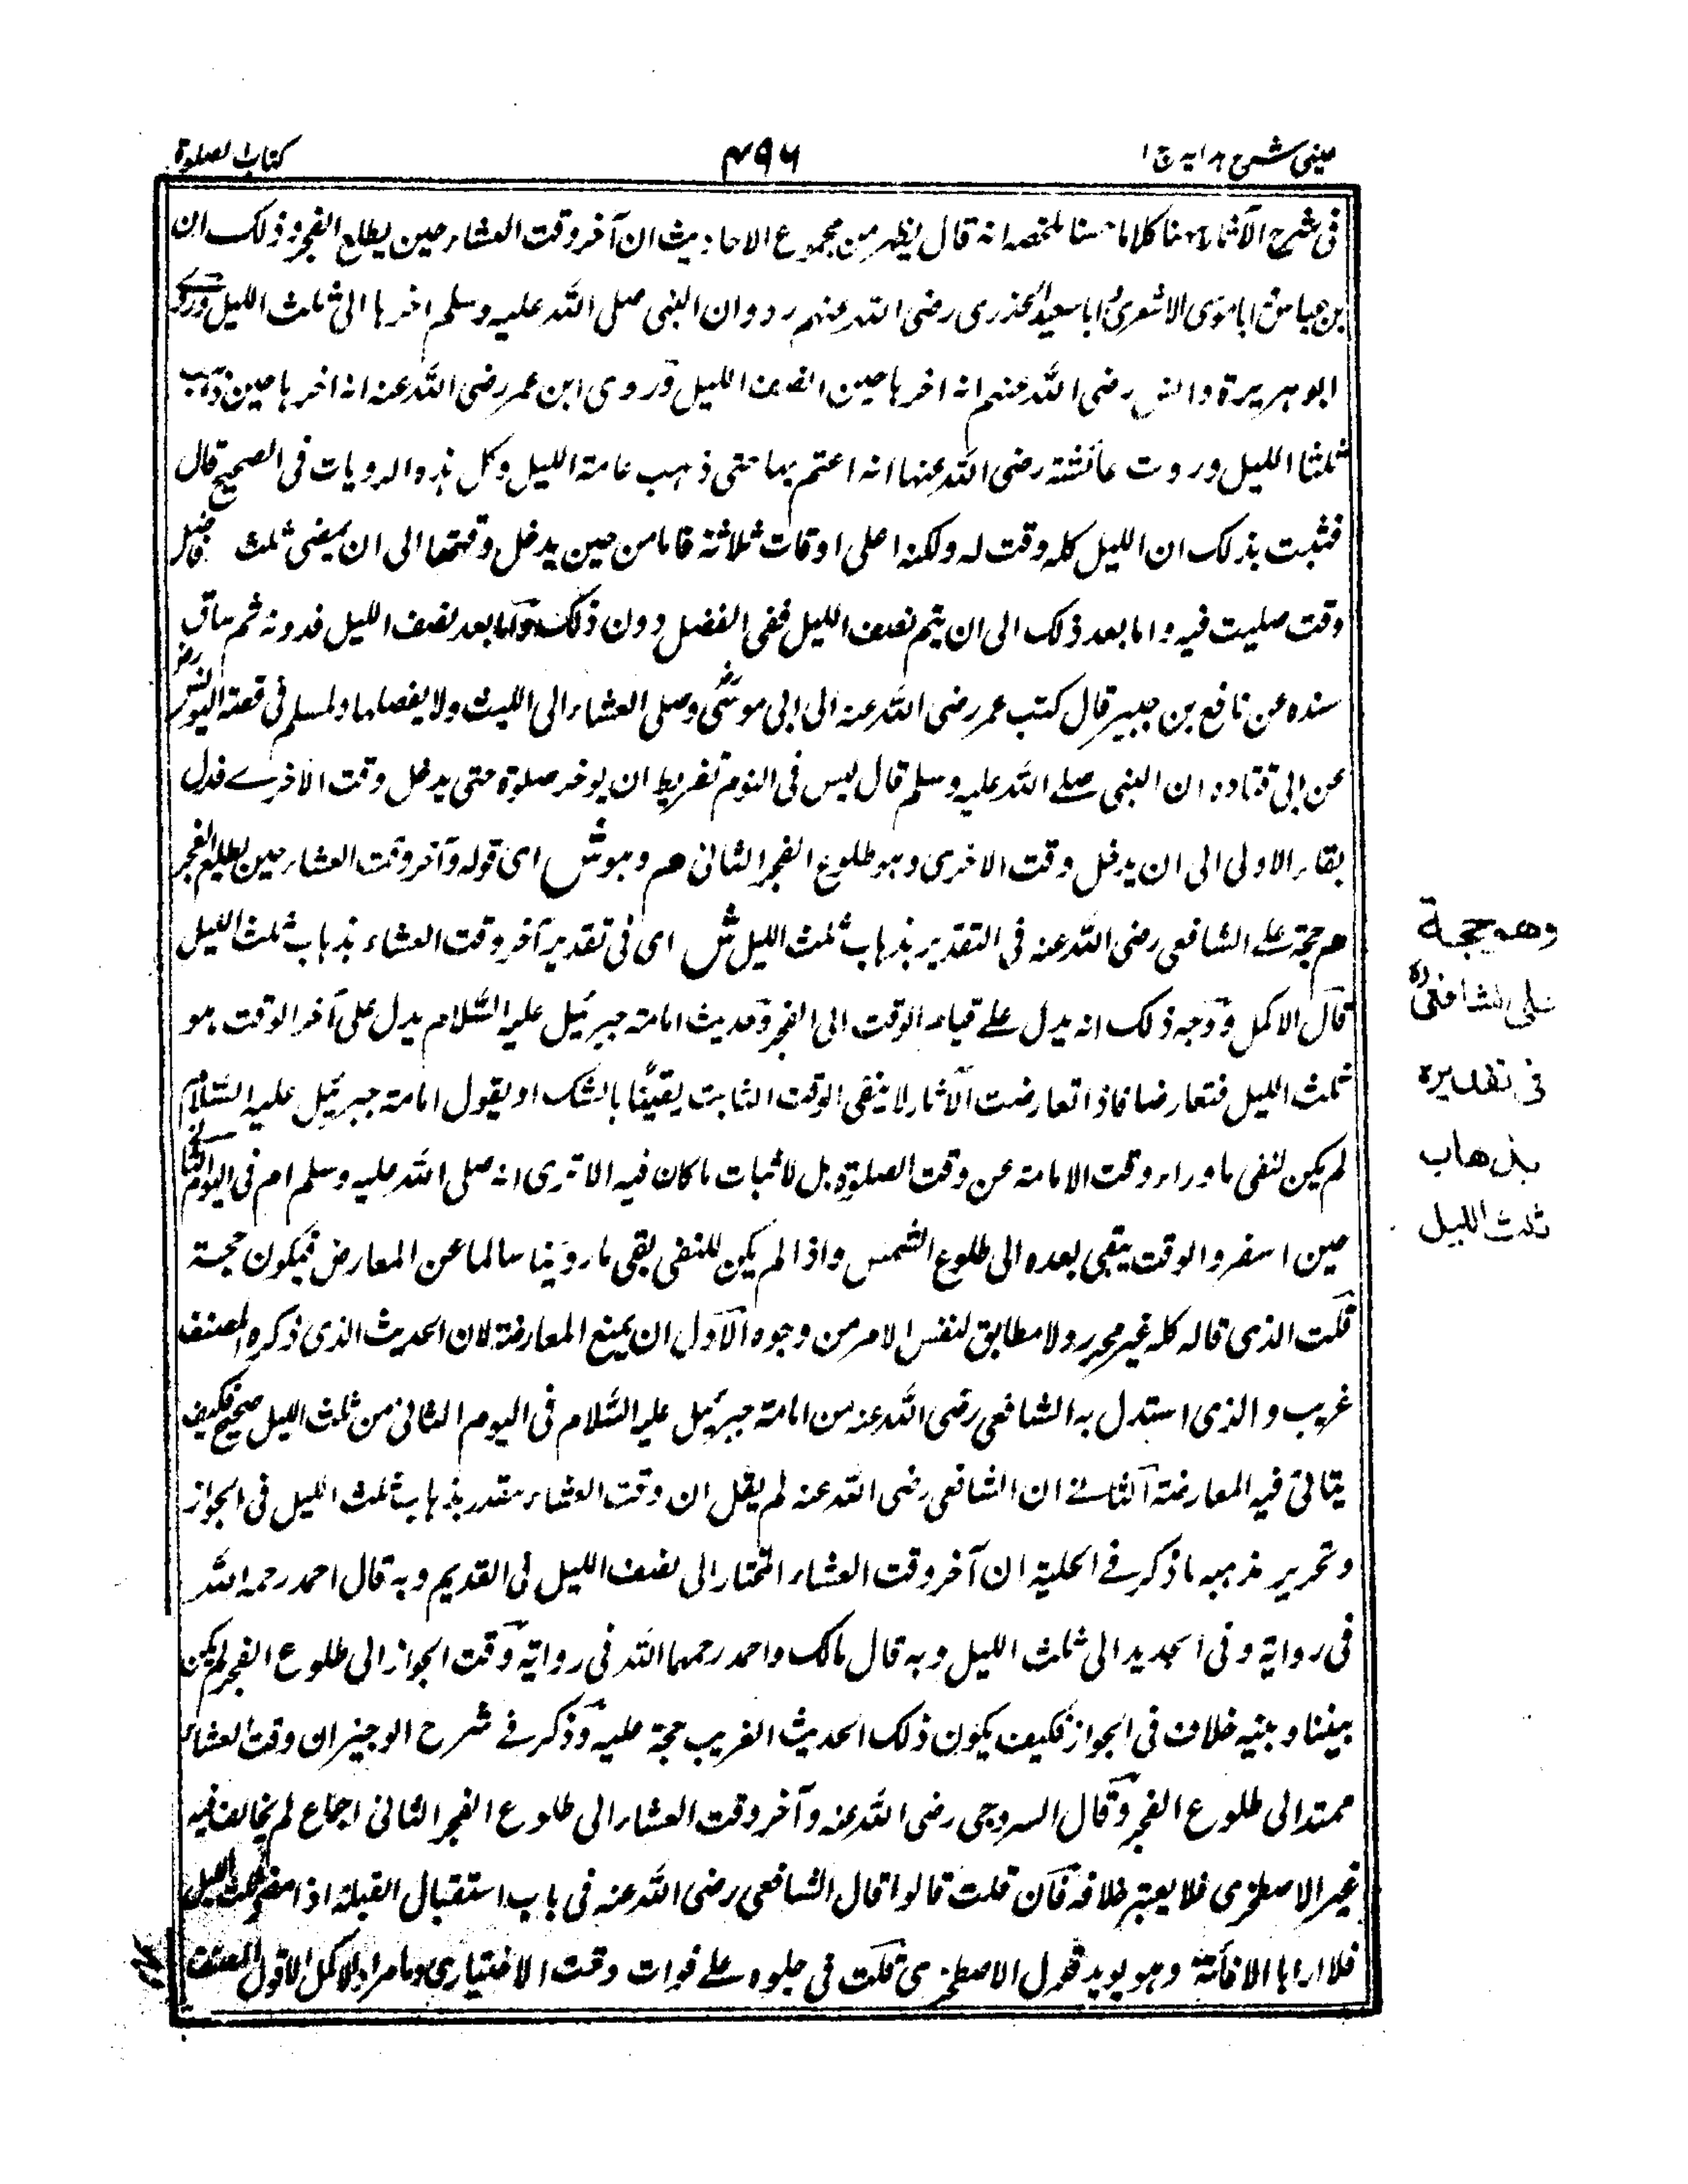 عینی شرح ہدایہ ج ۱
۴۹۶
کتاب الصلوة
فی شرح الآثار ههنا کلاما حسنا ملخصه انه قال یظهر من مجموع الاحادیث ان آخر وقت العشاء حین یطلع الفجر وذلک ان
بن عباس ابا موسی الاشعری ابا سعید الخدری رضی الله عنهم رووا ان النبی صلی الله علیه وسلم اخرها الی ثلث اللیل وروی
ابو هریرة وانس رضی الله عنهم انه اخرها حین انصف اللیل وروی ابن عمر رضی الله عنه انه اخرها حین ذهب
ثلثا اللیل وروت عائشة رضی الله عنها انه اعتم بها حتی ذهب عامة اللیل وکل هذه الروایات فی الصحیح قال
فثبت بذلک ان اللیل کله وقت له ولکنه اعلی اوقات ثلاثة فاما من حین یدخل وقتها الی ان یمضی ثلث فافضل
وقت صلیت فیه واما بعد ذلک الی ان یتم نصف اللیل ففی الفضل دون ذلک واما بعد نصف اللیل فدونه ثم ساق
سنده عن نافع بن جبیر قال کتب عمر رضی الله عنه الی ابی موسی وصلی العشاء الی اللیث ولا یفصلها ولمسلم فی قصة
عن ابی قتاده ان النبی صلے الله علیه وسلم قال لیس فی النوم تفریط ان یوخر صلوة حتی یدخل وقت الاخرے فدل
بقاء الاولی الی ان یدخل وقت الاخری وهو طلوع الفجر الثانی هم وهو ش ای قوله وآخر وقت العشاء حین یطلع الفجر
هم حجة علے الشافعی رضی الله عنه فی التقدیر بذهاب ثلث اللیل ش ای فی تقدیر آخر وقت العشاء بذهاب ثلث اللیل
قال الاکمل ووجه ذلک انه یدل علے قیام الوقت الی الفجر وحدیث امامة جبرئیل علیه السلام یدل علی آخر الوقت هو
ثلث اللیل فتعارضا فاذا تعارضت الآثار لا ینفی الوقت الثابت یقینا بالشک او یقول امامة جبرئیل علیه السلام
لم یکن لنفی ما وراء وقت الامامة عن وقت الصلوة بل لاثبات ما کان فیه الا تری انه صلی الله علیه وسلم ام فی الیوم الثانی
حین اسفر والوقت یبقی بعده الی طلوع الشمس واذا لم یکن للنفی بقی ما روینا سالما عن المعارض فیکون حجة
قلت الذی قاله کله غیر محرر ولا مطابق لنفس الامر من وجوه الاول ان یمنع المعارضة لان الحدیث الذی ذکره المصنف
غریب والذی استدل به الشافعی رضی الله عنه من امامة جبرئیل علیه السلام فی الیوم الثانی من ثلث اللیل صحیح فکیف
یتاتی فیه المعارضة الثانے ان الشافعی رضی الله عنه لم یقل ان وقت العشاء مقدر بذهاب ثلث اللیل فی الجواز
وتحریر مذهبه ما ذکر فے الحلیة ان آخر وقت العشاء المختار الی نصف اللیل فی القدیم وبه قال احمد رحمه الله
فی روایة وفی الجدید الی ثلث اللیل وبه قال مالک واحمد رحمهما الله فی روایة وقت الجواز الی طلوع الفجر لم یکن
بیننا وبینه خلاف فی الجواز فکیف یکون ذلک الحدیث الغریب حجة علیه وذکر فے شرح الوجیز ان وقت العشاء
ممتد الی طلوع الفجر وقال السروجی رضی الله عنه وآخر وقت العشاء الی طلوع الفجر الثانی اجماع لم یخالف فیه
غیر الاصطخری فلا یعتبر خلافه فان قلت قالوا قال الشافعی رضی الله عنه فی باب استقبال القبلة اذا مضی ثلث اللیل
فلا اراها الا فائتة وهو یوید قول الاصطخری قلت فی علے فوات وقت الاختیاری وما مراد الاکمل الا قول المصنف
وهو حجة
علی الشافعی رح
فی تقدیره
بذهاب
ثلث اللیل